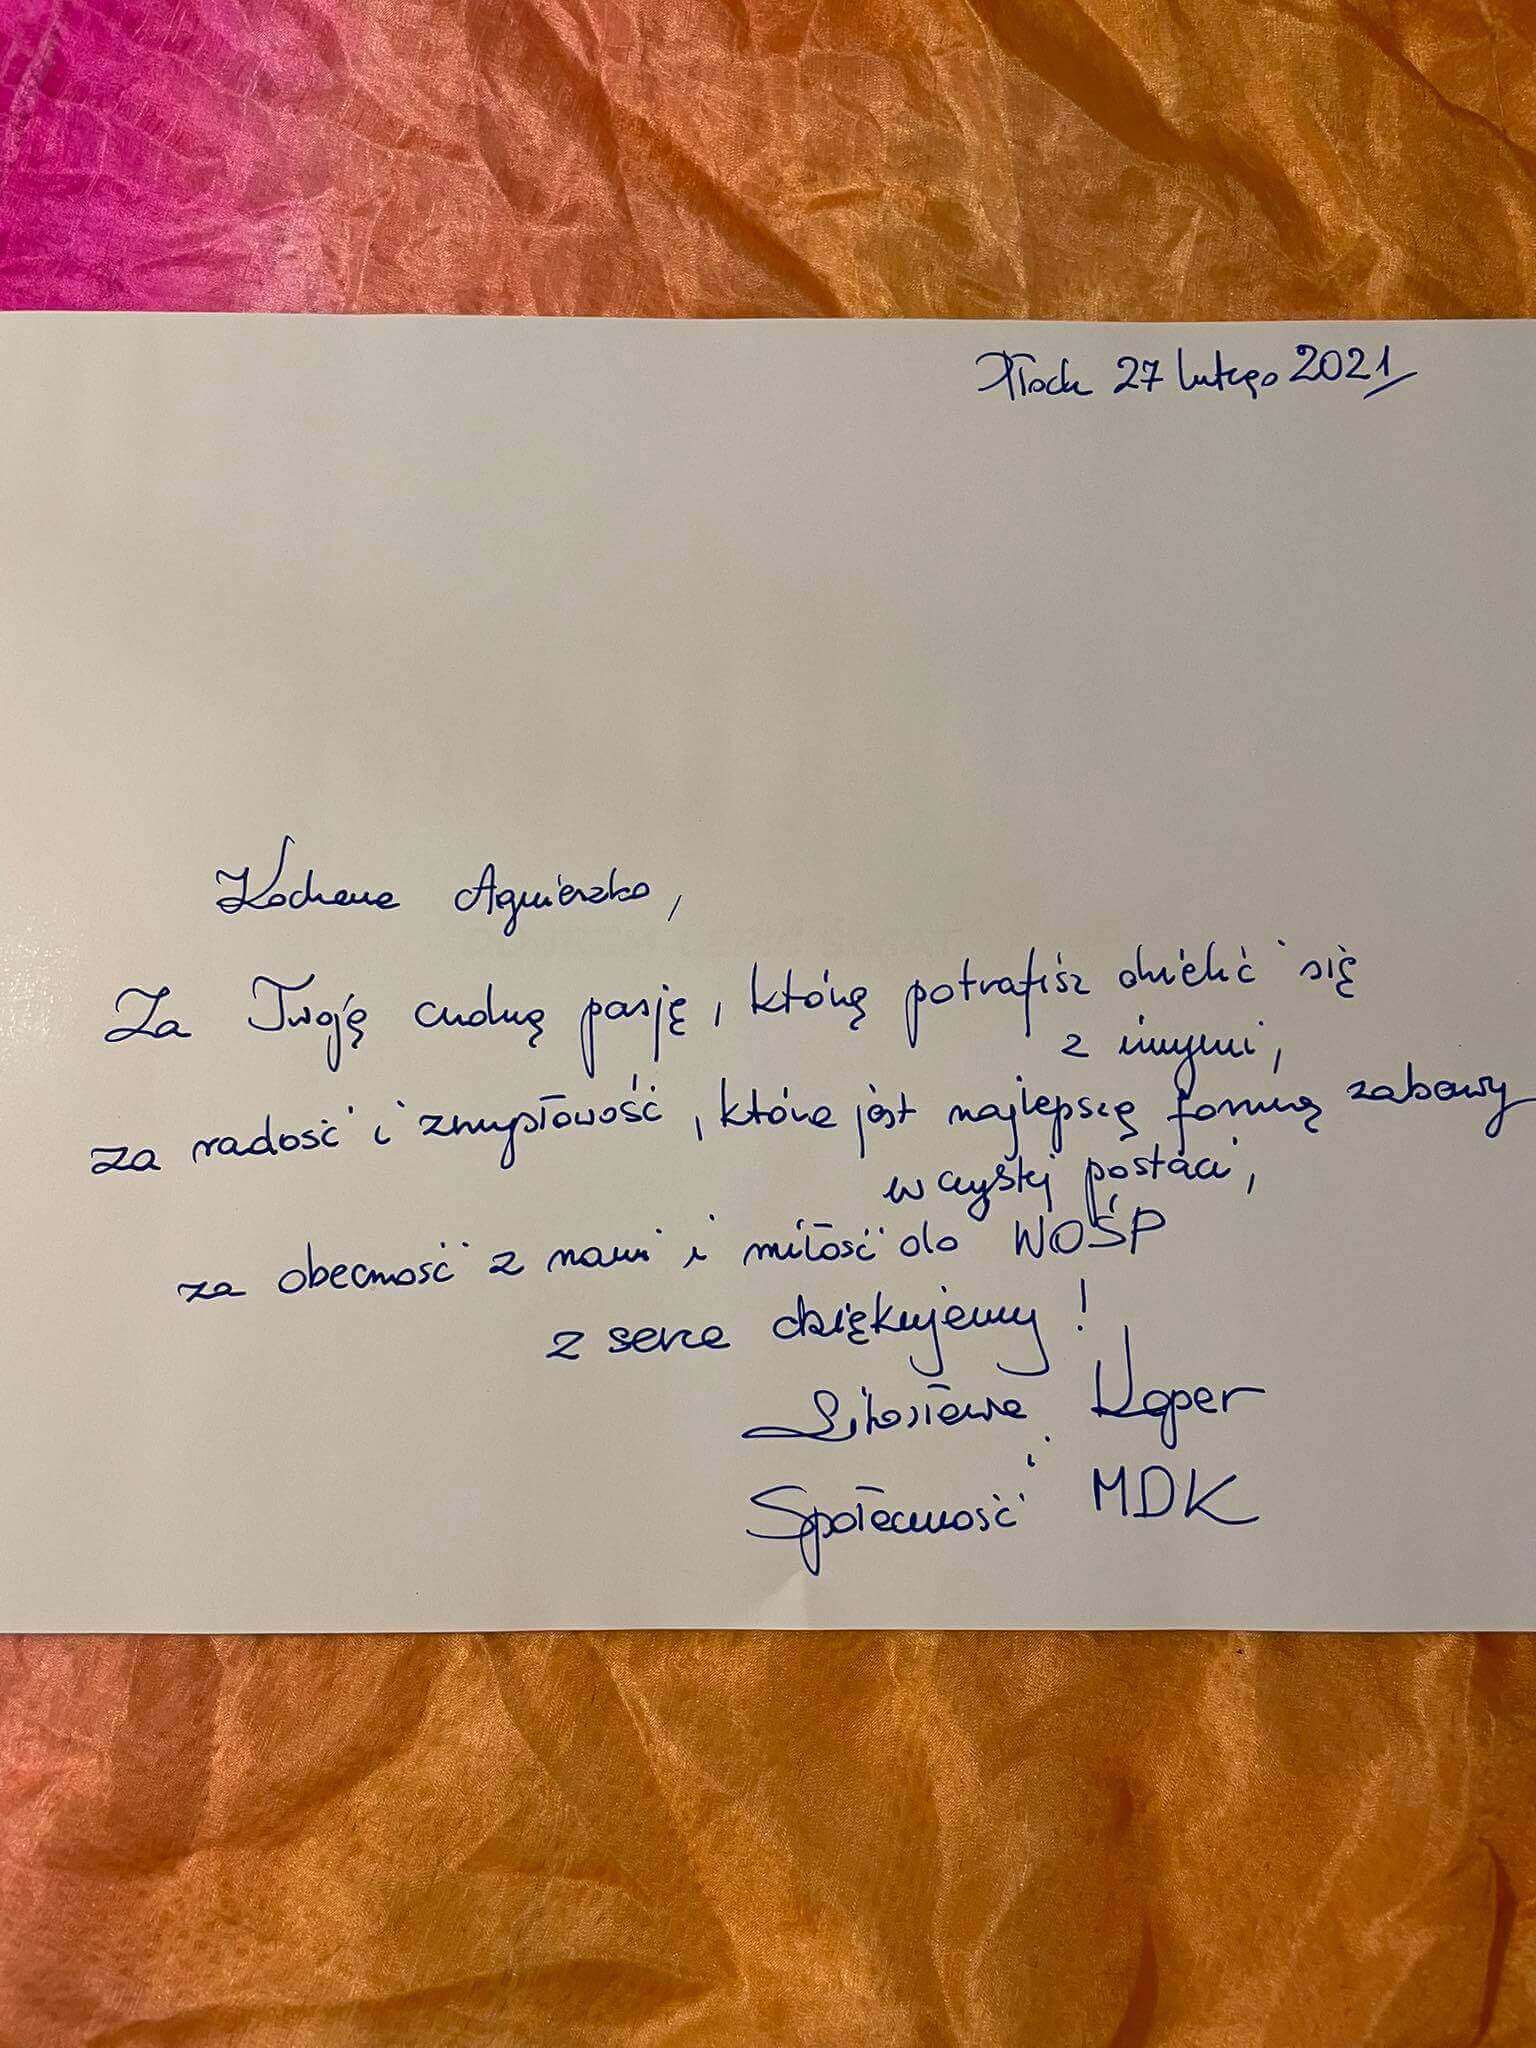 Płock 27 lutego 2021
Kochana Agnieszko,
Za Twoją cudną pasję, którą potrafisz dzielić się
z innymi,
za radość i zmysłowość, która jest najlepszą formą zabawy
w czystej postaci,
za obecność z nami i miłość do WOŚP
z serca dziękujemy!
Litosława Koper
i
Społeczność MDK